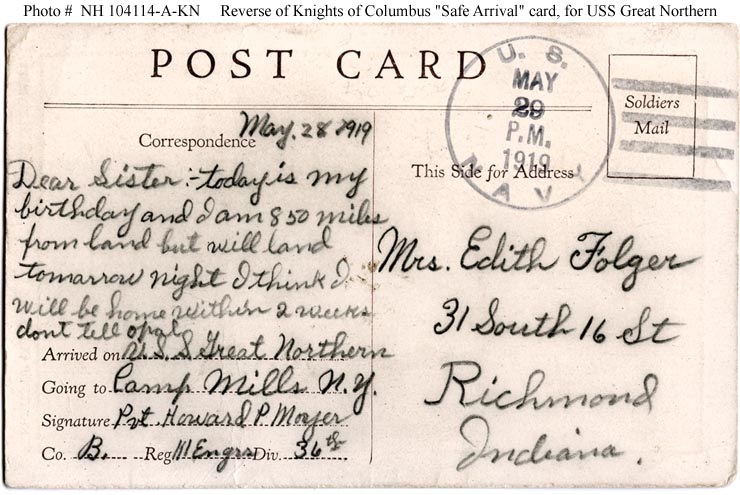 Photo # NH 104114-A-KN Reverse of Knights of Columbus "Safe Arrival" card, for USS Great Northern
POST CARD
U. S.
MAY
29
P.M.
1919
NAVY
Soldiers
Mail
Correspondence
May. 28 1919
This Side for Address
Dear Sister:- today is my
birthday and I am 850 miles
from land but will land
tomarrow night I think I
will be home within 2 weeks
dont tell opal
Arrived on U.S.S Great Northern
Going to Camp Mills N.Y.
Signature Pvt Howard P Moyer
Co. B. Reg 111 Engrs Div. 36th
Mrs. Edith Folger
31 South 16 St
Richmond
Indiana.